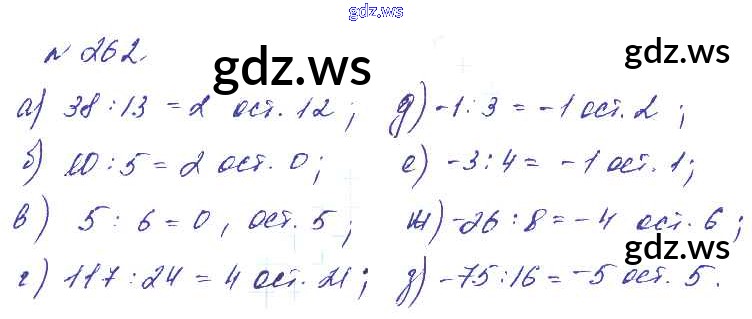 gdz.ws
№ 262.
gdz.ws
gdz.ws
а) 38 : 13 = 2 ост. 12 ; д) -1 : 3 = -1 ост. 2 ;
б) 10 : 5 = 2 ост. 0 ; е) -3 : 4 = -1 ост. 1 ;
в) 5 : 6 = 0 , ост. 5 ; ж) -26 : 8 = -4 ост. 6 ;
г) 117 : 24 = 4 ост. 21 ; з) -75 : 16 = -5 ост. 5.
gdz.ws
gdz.ws